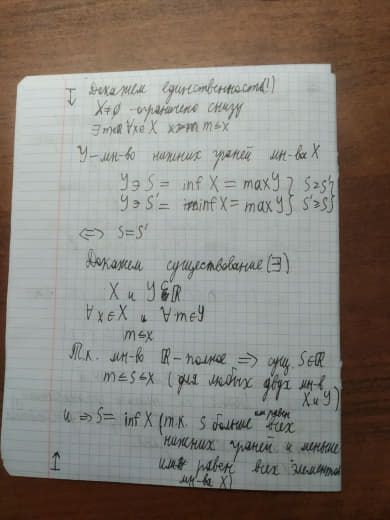 (Докажем единственность!)
X≠∅ - ограничено снизу
∃ m ∀x∈X m≤x
Y - мн-во нижних граней мн-ва X
Y∋S = inf X = max Y } S≥S'
Y∋S' = inf X = max Y } S'≥S
<=> S=S'
Докажем существование (∃)
X и Y ⊂ ℝ
∀x∈X и ∀m∈Y
m≤x
Т.к. мн-во ℝ - полное => сущ. S∈ℝ
m≤S≤x (для любых двух мн-в
X и Y)
и => S = inf X (т.к. S больше или равен всех
нижних граней и меньше
или равен всех элементов
мн-ва X)